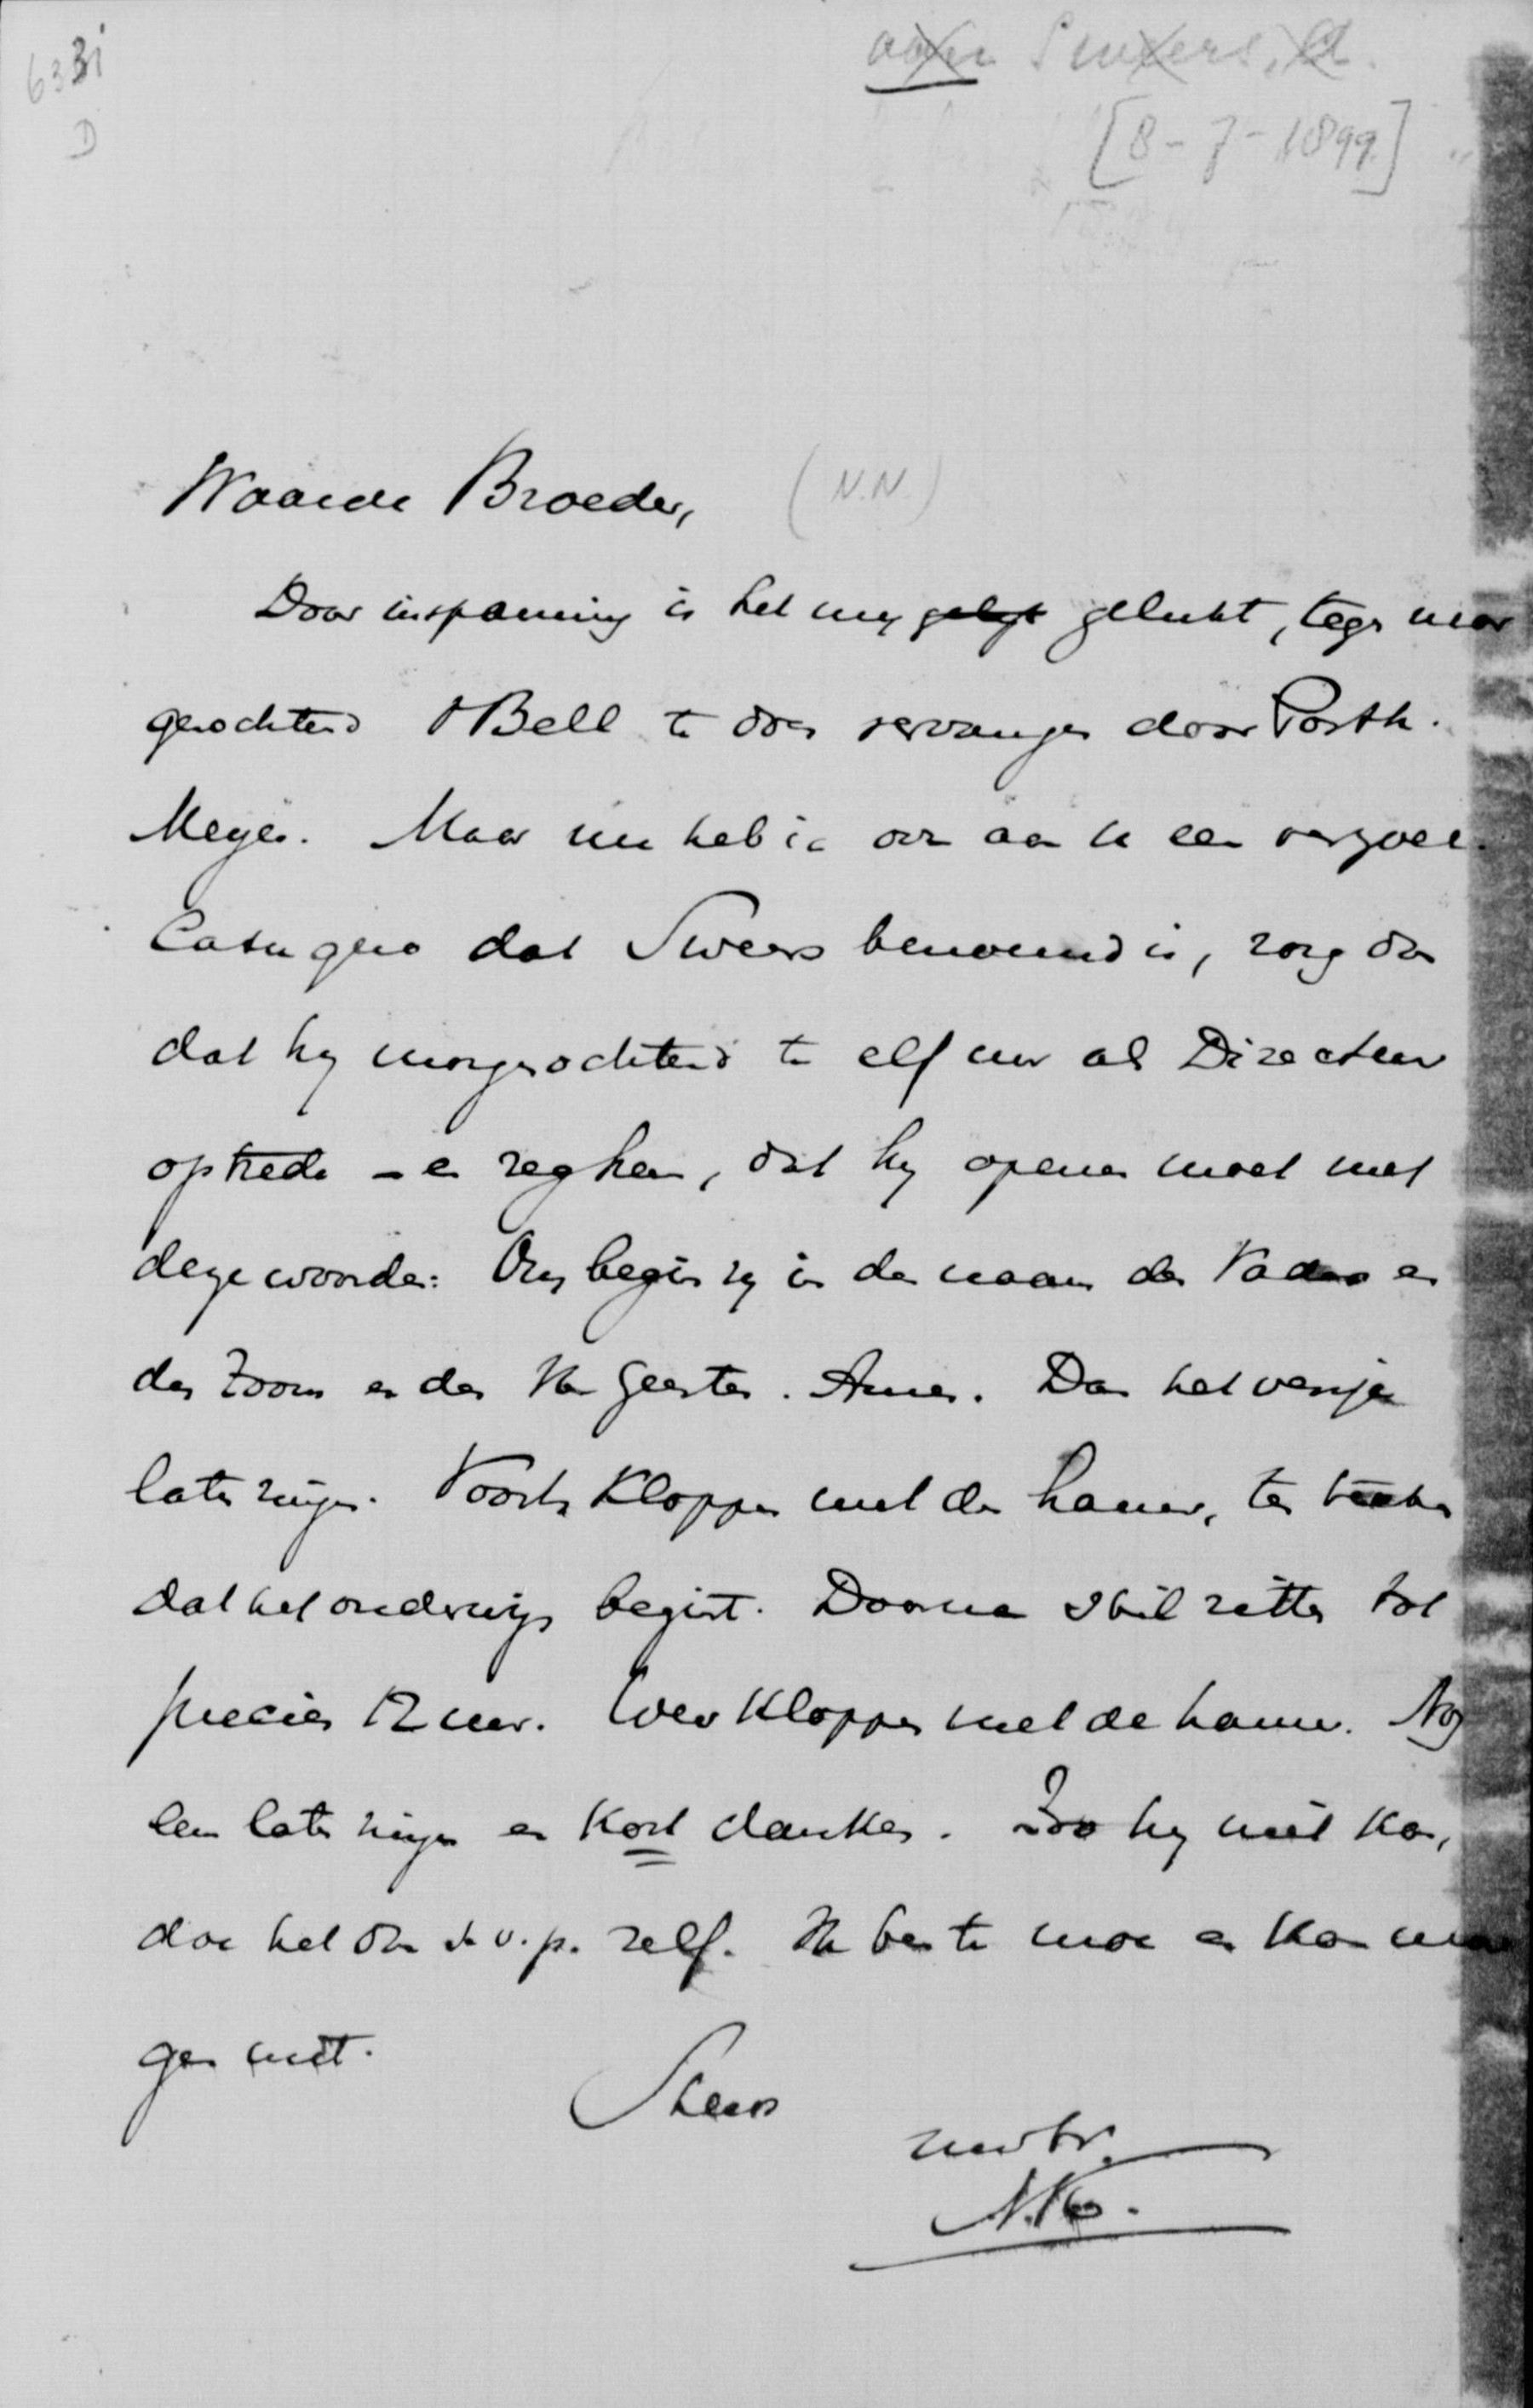 6331
D
aan Sweers, A.
[8-7-1899]
Waarde Broeder, (N.N.)
Door inspanning is het my gelukt, tegen mor
genochtend Bell te doen vervangen door Posth.
Meyes. Maar nu heb ik ook aan u een verzoek.
Casu quo dat Sweers benoemd is, zorg dan
dat hy morgenochtend te elf uur als Directeur
optrede – en zeg hem, dat hy openen moet met
deze woorden: Ons begin zy in den naam des Vaders en
des Zoons en des H. Geestes. Amen. Dan het versje
laten zingen. Voorts kloppen met den hamer, ten teeken
dat het onderwijs begint. Daarna stil zitten tot
precies 12 uur. Weer kloppen met de hamer. Nog
een laten zingen en kort danken. Zoo hy niet kan,
doe het dan s.v.p. zelf. Ik ben te moe en kan mor
gen niet.
Steeds
uw br.
A. Ku.